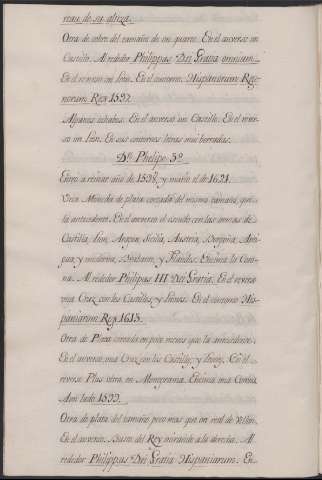 rian de su alteza.
Otra de cobre del tamaño de un quarto. En el anverso un
Castillo. Al rededor Philippus Dei Gratia omnium.
En el reverso un Leon. En el contorno. Hispaniarum Reg-
norum Rex 1597.
Algunos ochabos. En el anverso un Castillo. En el rever-
so un Leon. En sus contornos letras mui borradas.
Dn. Phelipe 3º
Entró a reinar año de 1598, y murió el de 1621.
Una Moneda de plata cortada del mismo tamaño, que
la antecedente. En el anverso el escudo con las armas de
Castilla, Leon, Aragon, Sicilia, Austria, Borgoña, Anti-
gua y moderna, Brabante, y Flandes. Encima la Coro-
na. Al rededor Philippus III Dei Gratia. En el rever-
una Cruz con los Castillos, y Leones. En el contorno His-
paniarum Rex 1613.
Otra de Plata cortada un poco menos que la antecedente.
En el anverso una Cruz con los Castillos, y Leones. En el
reverso Plus ultra, en Monograma. Encima una Corona.
A un lado 1599.
Otra de plata del tamaño poco mas que un real de Vellon.
En el anverso. Busto del Rey mirando a la derecha. Al
rededor Philippus Dei Gratia Hispaniarum. En